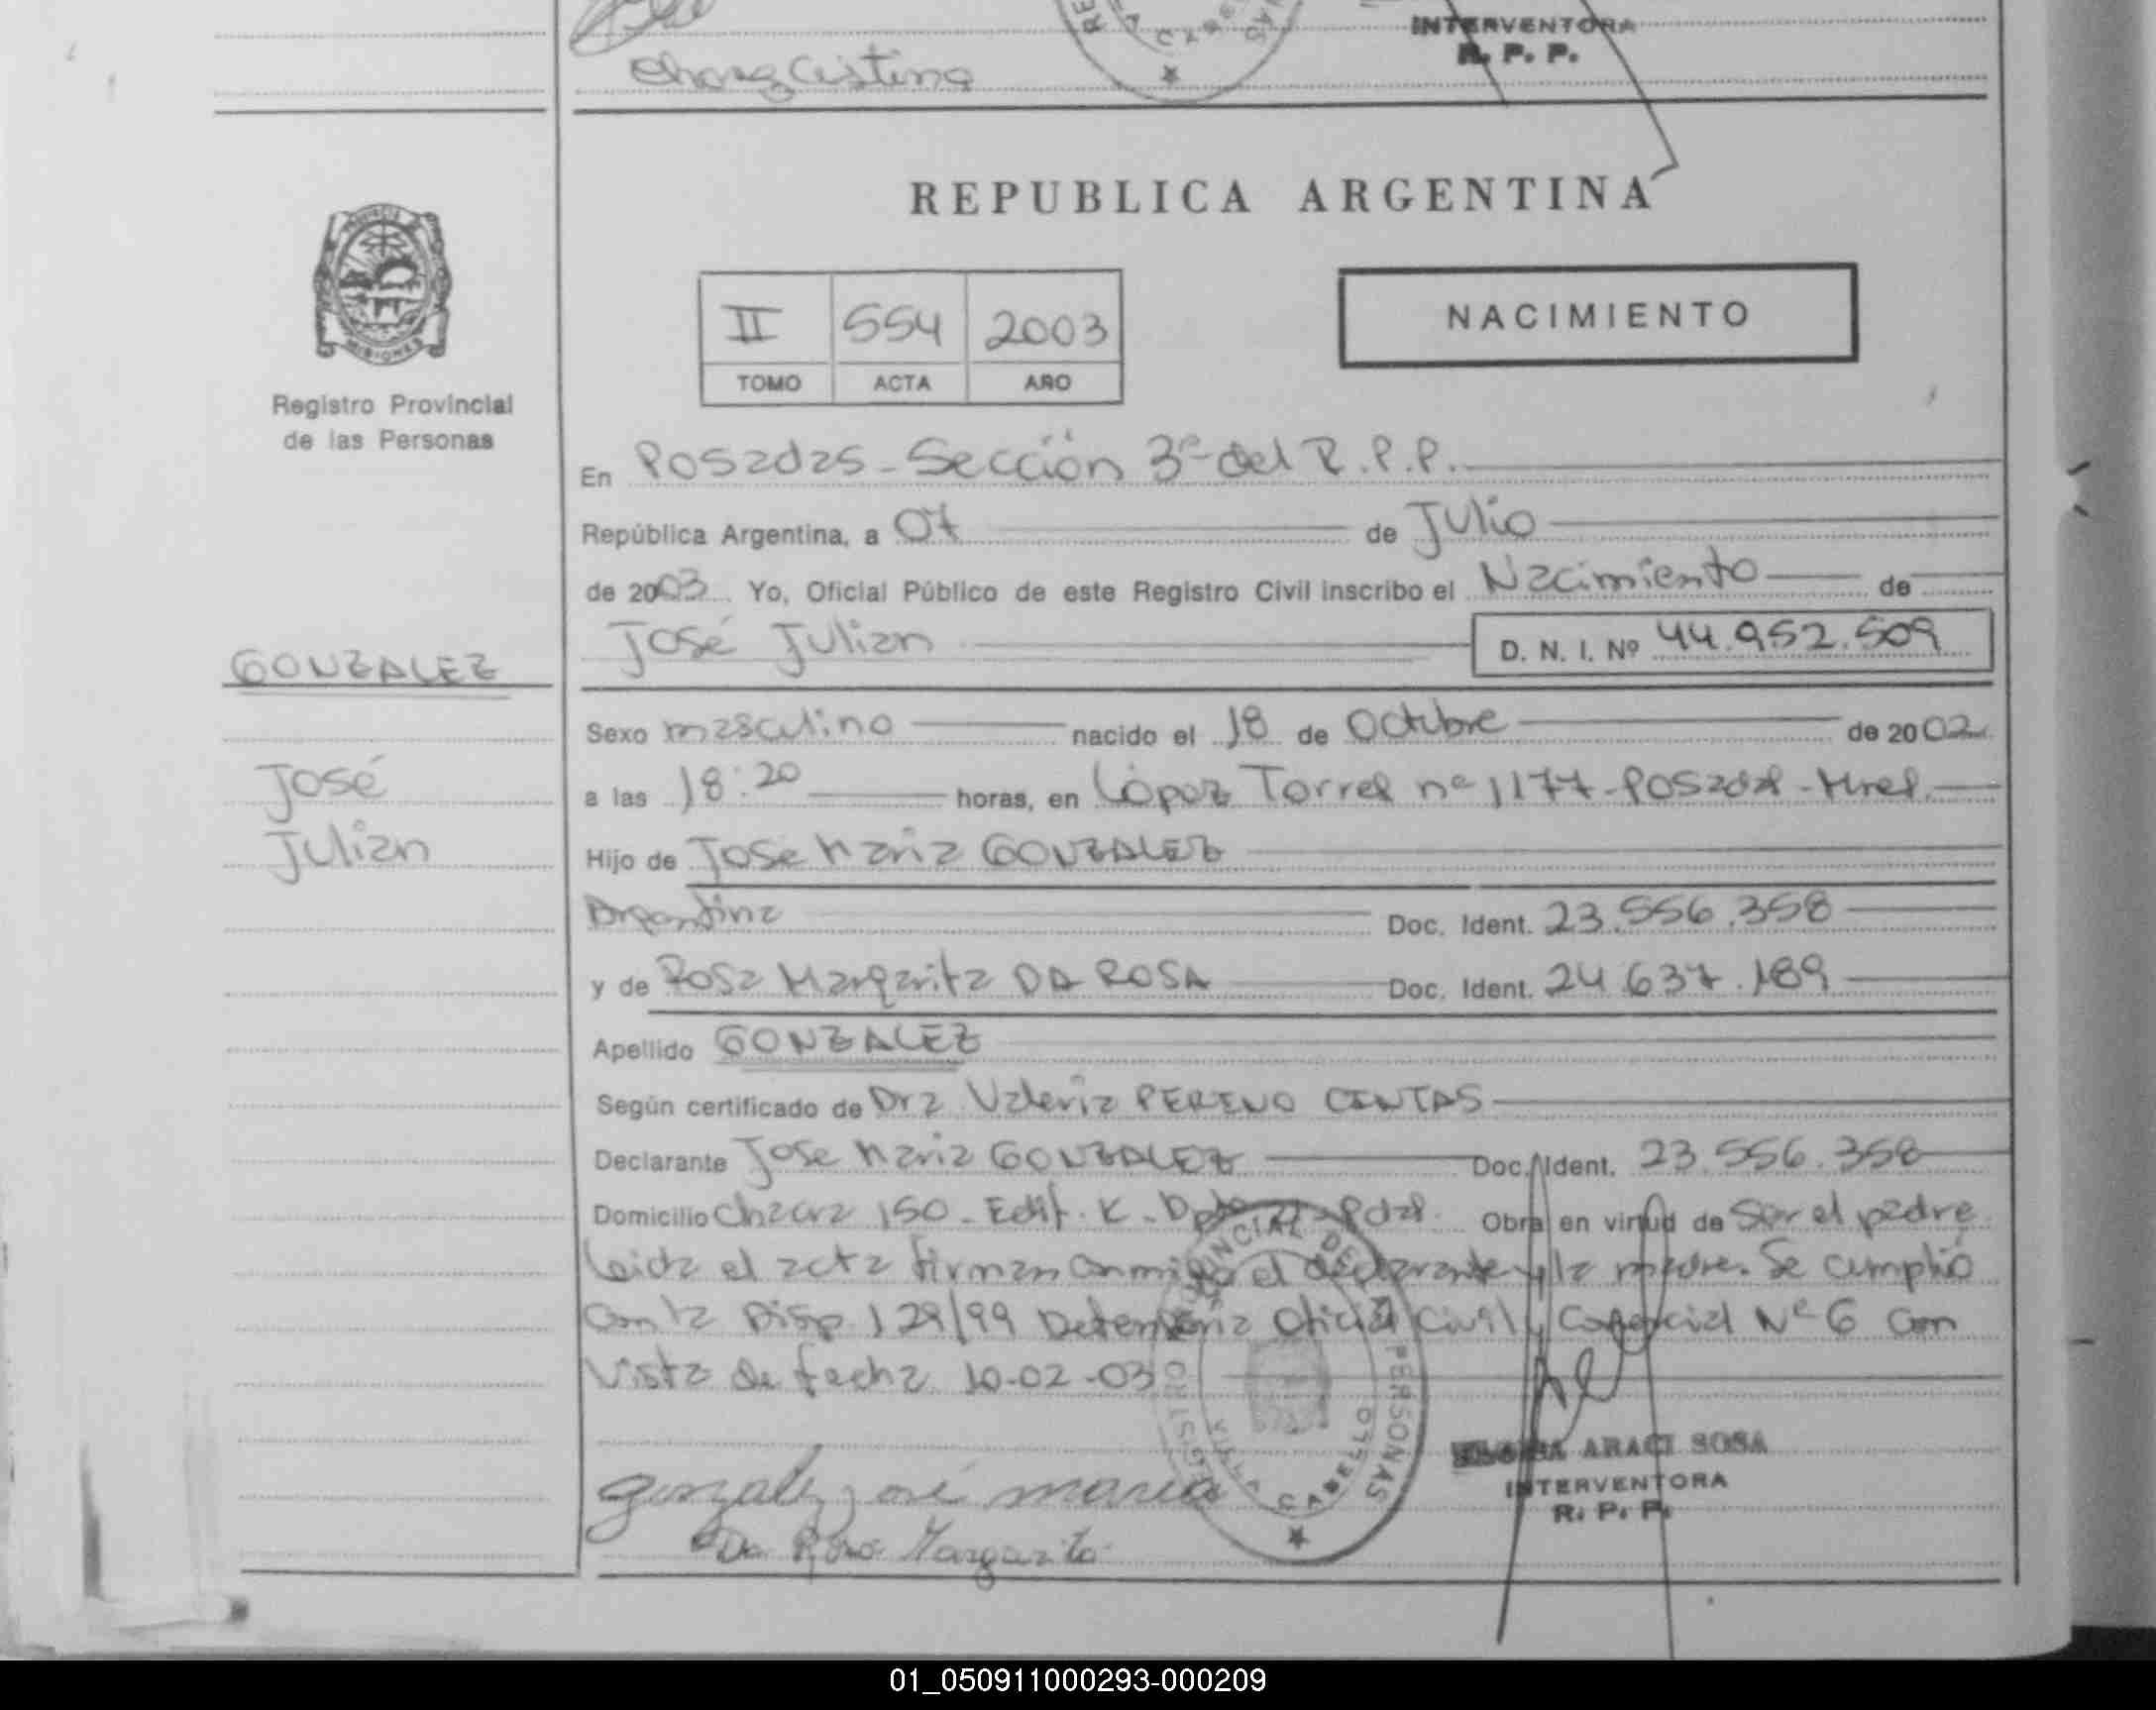 Chang Cistina
INTERVENTORA
R. P. P.
REPUBLICA ARGENTINA
NACIMIENTO
II 554 2003
TOMO ACTA AÑO
MISIONES
Registro Provincial
de las Personas
En Posadas - Sección 3ª del R.P.P.
República Argentina, a 07 de Julio
de 2003 Yo, Oficial Público de este Registro Civil inscribo el Nacimiento de
José Julian D. N. I. Nº 44.952.509
GONZALEZ
José
Julian
Sexo masculino nacido el 18 de Octubre de 2002
a las 18:20 horas, en López Torres nº 1177 - Posadas - Mnes.
Hijo de Jose Maria GONZALEZ
Argentina Doc. Ident. 23.556.358
y de Rosa Margarita DA ROSA Doc. Ident. 24.637.189
Apellido GONZALEZ
Según certificado de Dra Valeria PERENO CINTAS
Declarante Jose Maria GONZALEZ Doc. Ident. 23.556.358
Domicilio Chacra 150 - Edif. K - Pdas. Obra en virtud de Ser el padre
Leida el acta firman conmigo el declarante y la madre. Se cumplió
con la Disp. 129/99 Defensoria Oficial Civil y Comercial Nº 6 con
Vista de fecha 10-02-03
REGISTRO PROVINCIAL DE LAS PERSONAS
VILLA CABELLO
gonzalez José maria
Da Rosa Margarita
ARACI SOSA
INTERVENTORA
R. P. P.
01_050911000293-000209